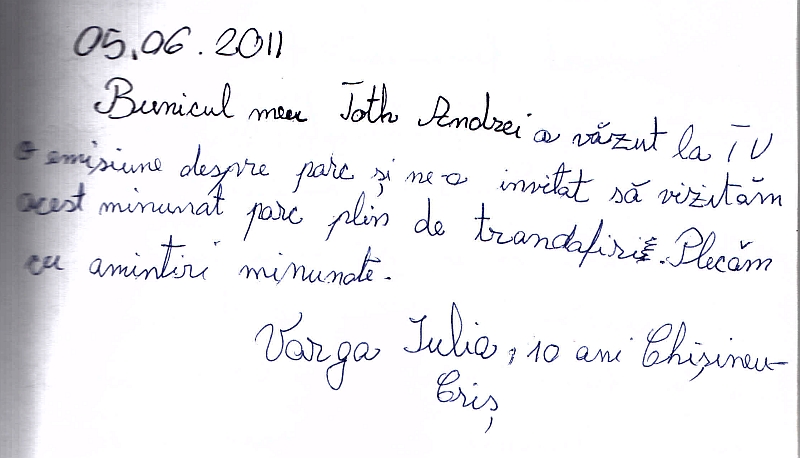 05.06.2011
Bunicul meu Toth Andrei a văzut la TV
o emisiune despre parc și ne-a invitat să vizităm
acest minunat parc plin de trandafiri. Plecăm
cu amintiri minunate.
Varga Iulia, 10 ani Chișineu-
Criș